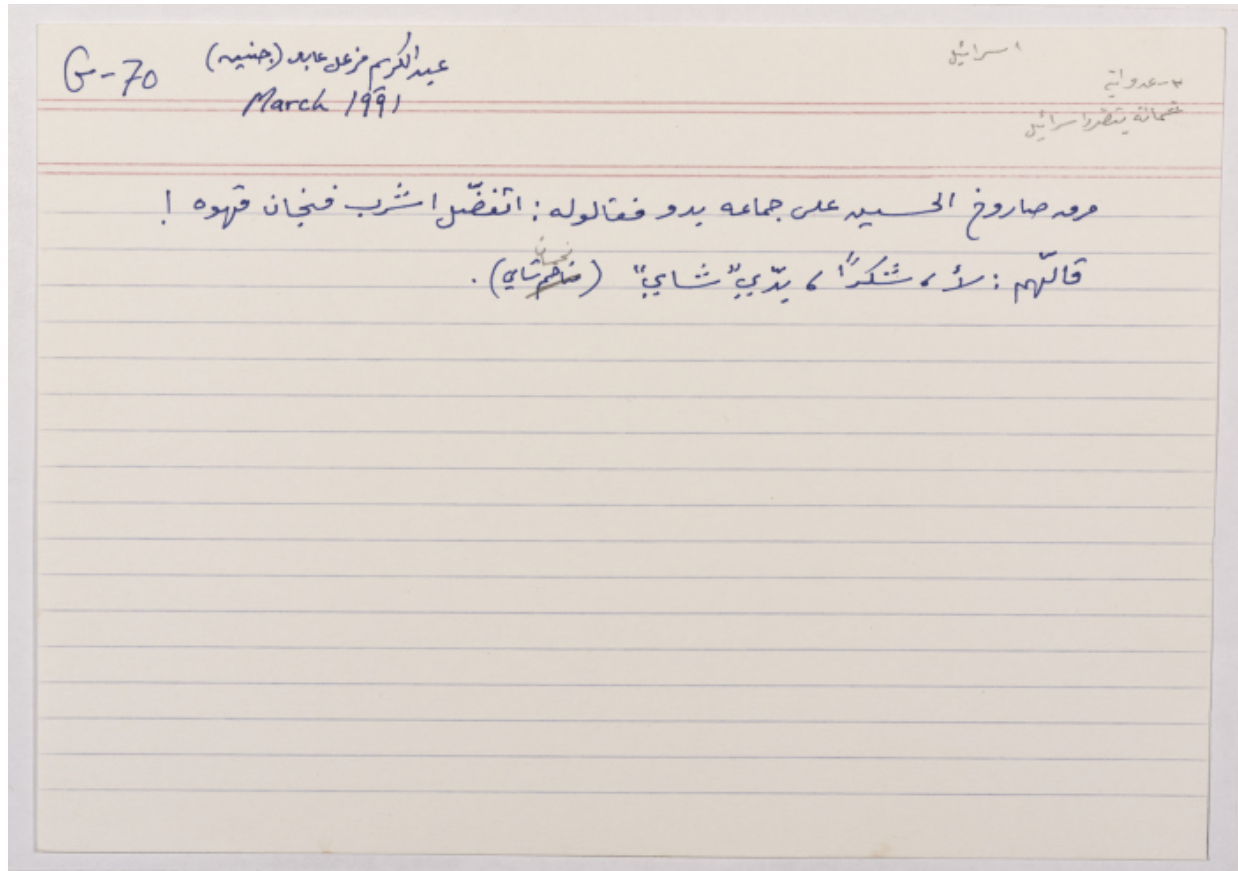 G-70
عبدالكريم مزعل عابد (جنين)
March 1991
اسرائيل
عدوانية
اسرائيل
مرق صاروخ الحسين على جماعه بدو فقالوله: اتفضّل اشرب فنجان قهوه!
فنجان
قالّهم: لأ، شكرًا، بدّي "شاي" (شاي).